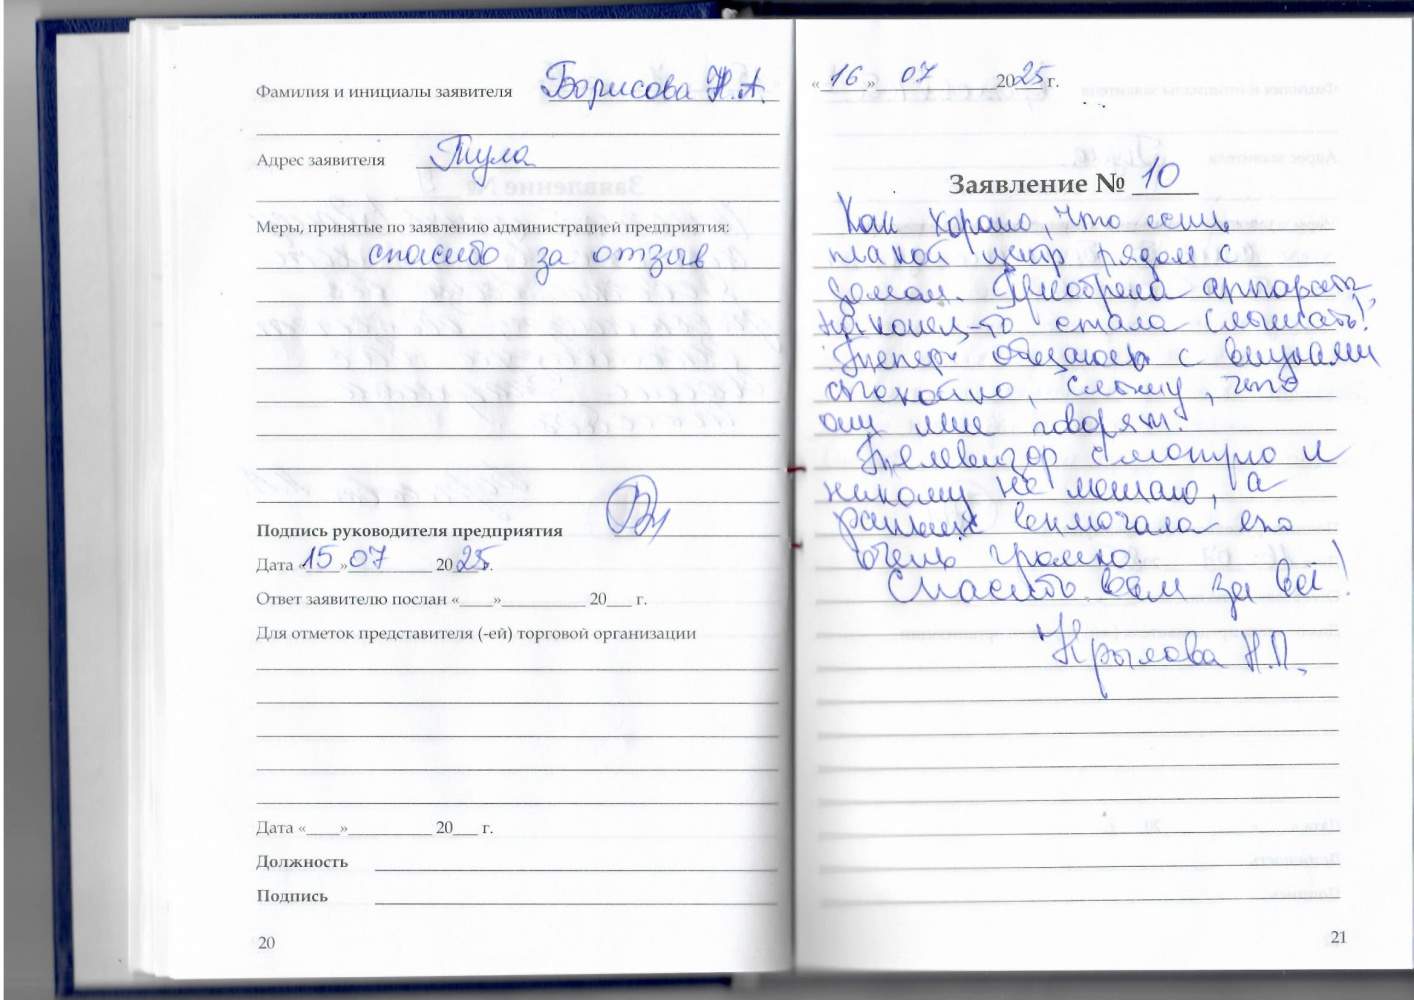 Фамилия и инициалы заявителя Борисова Н.А.
Адрес заявителя Тула
Меры, принятые по заявлению администрацией предприятия:
спасибо за отзыв
Подпись руководителя предприятия
Дата «15» 07 2025 г.
Ответ заявителю послан «____»__________ 20___ г.
Для отметок представителя (-ей) торговой организации
Дата «____»__________ 20___ г.
Должность
Подпись
20
«16» 07 2025 г.
Заявление № 10
Как хорошо, что есть
такой центр рядом с
домом. Приобрела аппараты,
наконец-то стала слышать!
Теперь общаюсь с внуками
спокойно, слышу, что
они мне говорят.
Телевизор смотрю и
никому не мешаю, а
раньше включала его
очень громко.
Спасибо вам за всё!
Крылова Н.П.
21